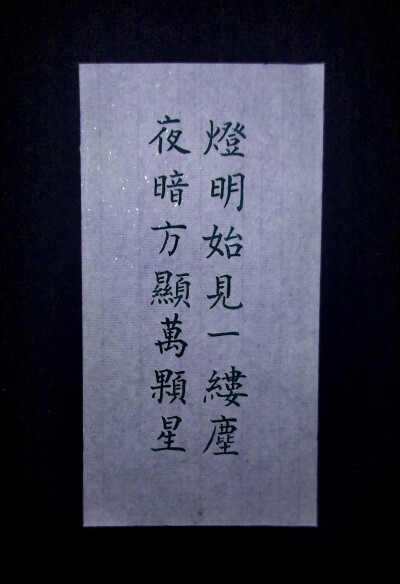 燈明始見一縷塵
夜暗方顯萬顆星